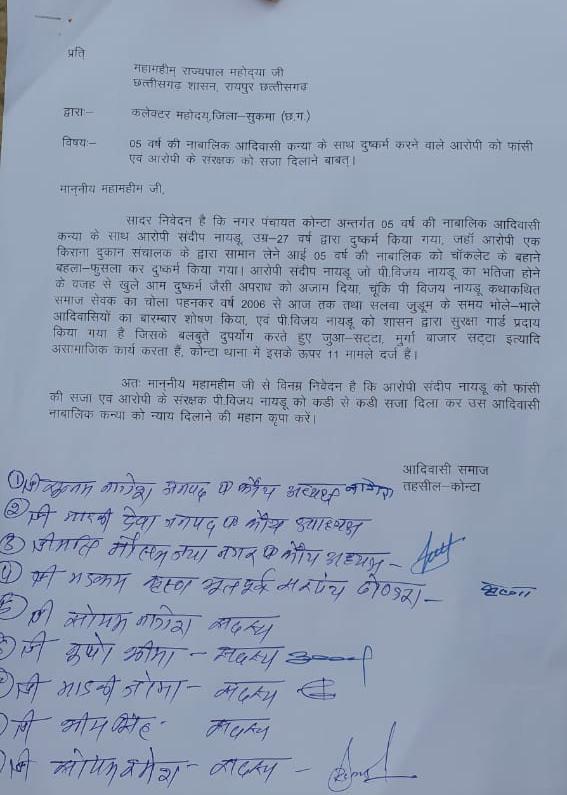 प्रति
महामहीम् राज्यपाल महोदया जी
छत्तीसगढ़ शासन, रायपुर छत्तीसगढ़
द्वाराः– कलेक्टर महोदय,जिला–सुकमा (छ.ग.)
विषयः– 05 वर्ष की नाबालिक आदिवासी कन्या के साथ दुष्कर्म करने वाले आरोपी को फांसी
एवं आरोपी के संरक्षक को सजा दिलाने बाबत्।
माननीय महामहीम जी,
सादर निवेदन है कि नगर पंचायत कोन्टा अन्तर्गत 05 वर्ष की नाबालिक आदिवासी
कन्या के साथ आरोपी संदीप नायडू, उम्र–27 वर्ष द्वारा दुष्कर्म किया गया, जहॉ आरोपी एक
किराना दुकान संचालक के द्वारा सामान लेने आई 05 वर्ष की नाबालिक को चॉकलेट के बहाने
बहला–फुसला कर दुष्कर्म किया गया। आरोपी संदीप नायडू जो पी.विजय नायडू का भतिजा होने
के वजह से खुले आम दुष्कर्म जैसी अपराध को अजाम दिया, चूकि पी विजय नायडू कथाकथित
समाज सेवक का चोला पहनकर वर्ष 2006 से आज तक तथा सलवा जुडूम के समय भोले–भाले
आदिवासीयों का बारम्बार शोषण किया, एवं पी.विजय नायडू को शासन द्वारा सुरक्षा गार्ड प्रदाय
किया गया है जिसके बलबुते दुपर्योग करते हुए जुआ–सट्टा, मुर्गा बाजार सट्टा इत्यादि
असामाजिक कार्य करता हैं, कोन्टा थाना में इसके ऊपर 11 मामले दर्ज हैं।
अतः माननीय महामहीम जी से विनम्र निवेदन है कि आरोपी संदीप नायडू को फांसी
की सजा एवं आरोपी के संरक्षक पी.विजय नायडू को कडी से कडी सजा दिला कर उस आदिवासी
नाबालिक कन्या को न्याय दिलाने की महान कृपा करें।
आदिवासी समाज
तहसील–कोन्टा
① श्री नागेश जनपद अध्यक्ष
② श्री माडवी देवा जनपद उपाध्यक्ष
③ श्रीमति मौसम जया नगर अध्यक्ष –
④ श्री मडकम भूतपूर्व सरपंच –
श्री सोयम नागेश सदस्य
श्री भीमा – सदस्य
श्री माडवी जोगा – सदस्य
श्री भीम सिंह – सदस्य
श्री सोयम रमेश – सदस्य –